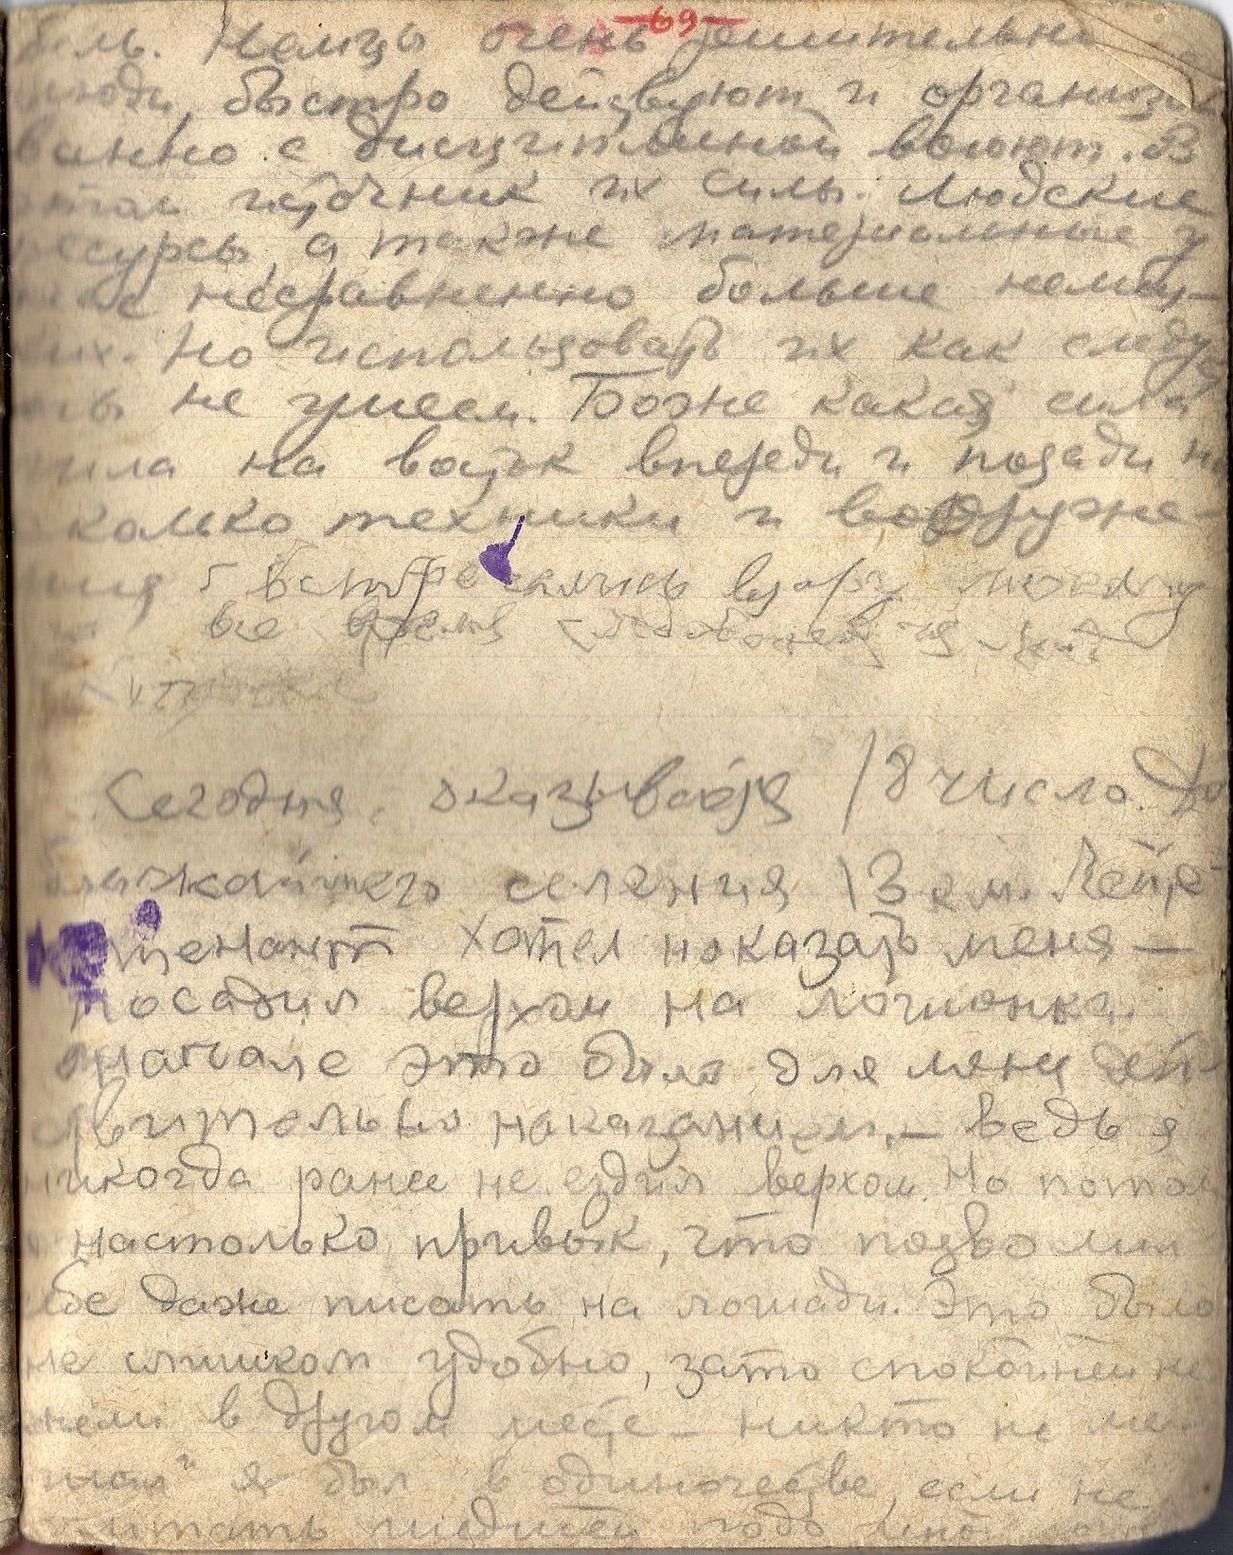 -69-
биль. Немцы очень решительные
люди, быстро действуют и организо
ванно с дисциплиной воюют. В
этом источник их силы. Людские
ресурсы, а также материальные у
нас несравненно больше немец-
ких. Но использовать их как следу
ет мы не умеем. Боже какая сила
на восток впереди и позади
сколько техники и вооруже-
ния встречались
все время
Сегодня, оказывается 18 число. До
ближайшего селения 13 км. Лейте-
нант хотел наказать меня –
посадил верхом на лошонка.
Вначале это было для меня дей-
ствительно наказанием, – ведь я
никогда ранее не ездил верхом. Но потом
настолько привык, что позволил
себе даже писать на лошади. Это было
не слишком удобно, зато спокойней не
жели в другом месте – никто не ме-
шал и я был в одиночестве, если не
считать шедшей подо мной